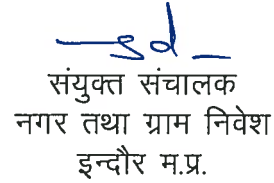 —sd—
संयुक्त संचालक
नगर तथा ग्राम निवेश
इन्दौर म.प्र.